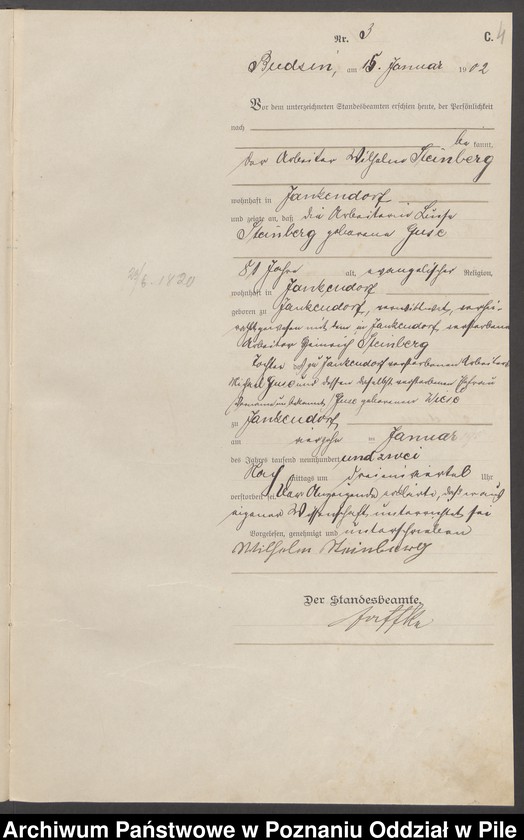 Nr. 3
C. 4
Budsin, am 15. Januar 1902
Vor dem unterzeichneten Standesbeamten erschien heute, der Persönlichkeit
nach
be kannt,
der Arbeiter Wilhelm Steinberg
wohnhaft in Jankendorf
und zeigte an, daß die Arbeiterin Luise
Steinberg geborene Guse
80 Jahre alt, evangelischer Religion,
wohnhaft in Jankendorf
geboren zu Jankendorf, verwittwet, verhei-
rathet gewesen mit dem in Jankendorf verstorbenen
Arbeiter Heinrich Steinberg
Tochter des zu Jankendorf verstorbenen Arbeiters
Michael Guse und dessen daselbst verstorbenen Ehefrau
Vorname unbekannt, Guse geborenen Wiese
zu Jankendorf
am vierzehn Januar
des Jahres tausend neunhundert und zwei
Nach mittags um drei Uhr
verstorben sei. Der Anzeigende erklärte, daß er aus
eigener Wissenschaft unterrichtet sei
Vorgelesen, genehmigt und unterschrieben
Wilhelm Steinberg
Der Standesbeamte.
1820
Archiwum Państwowe w Poznaniu Oddział w Pile